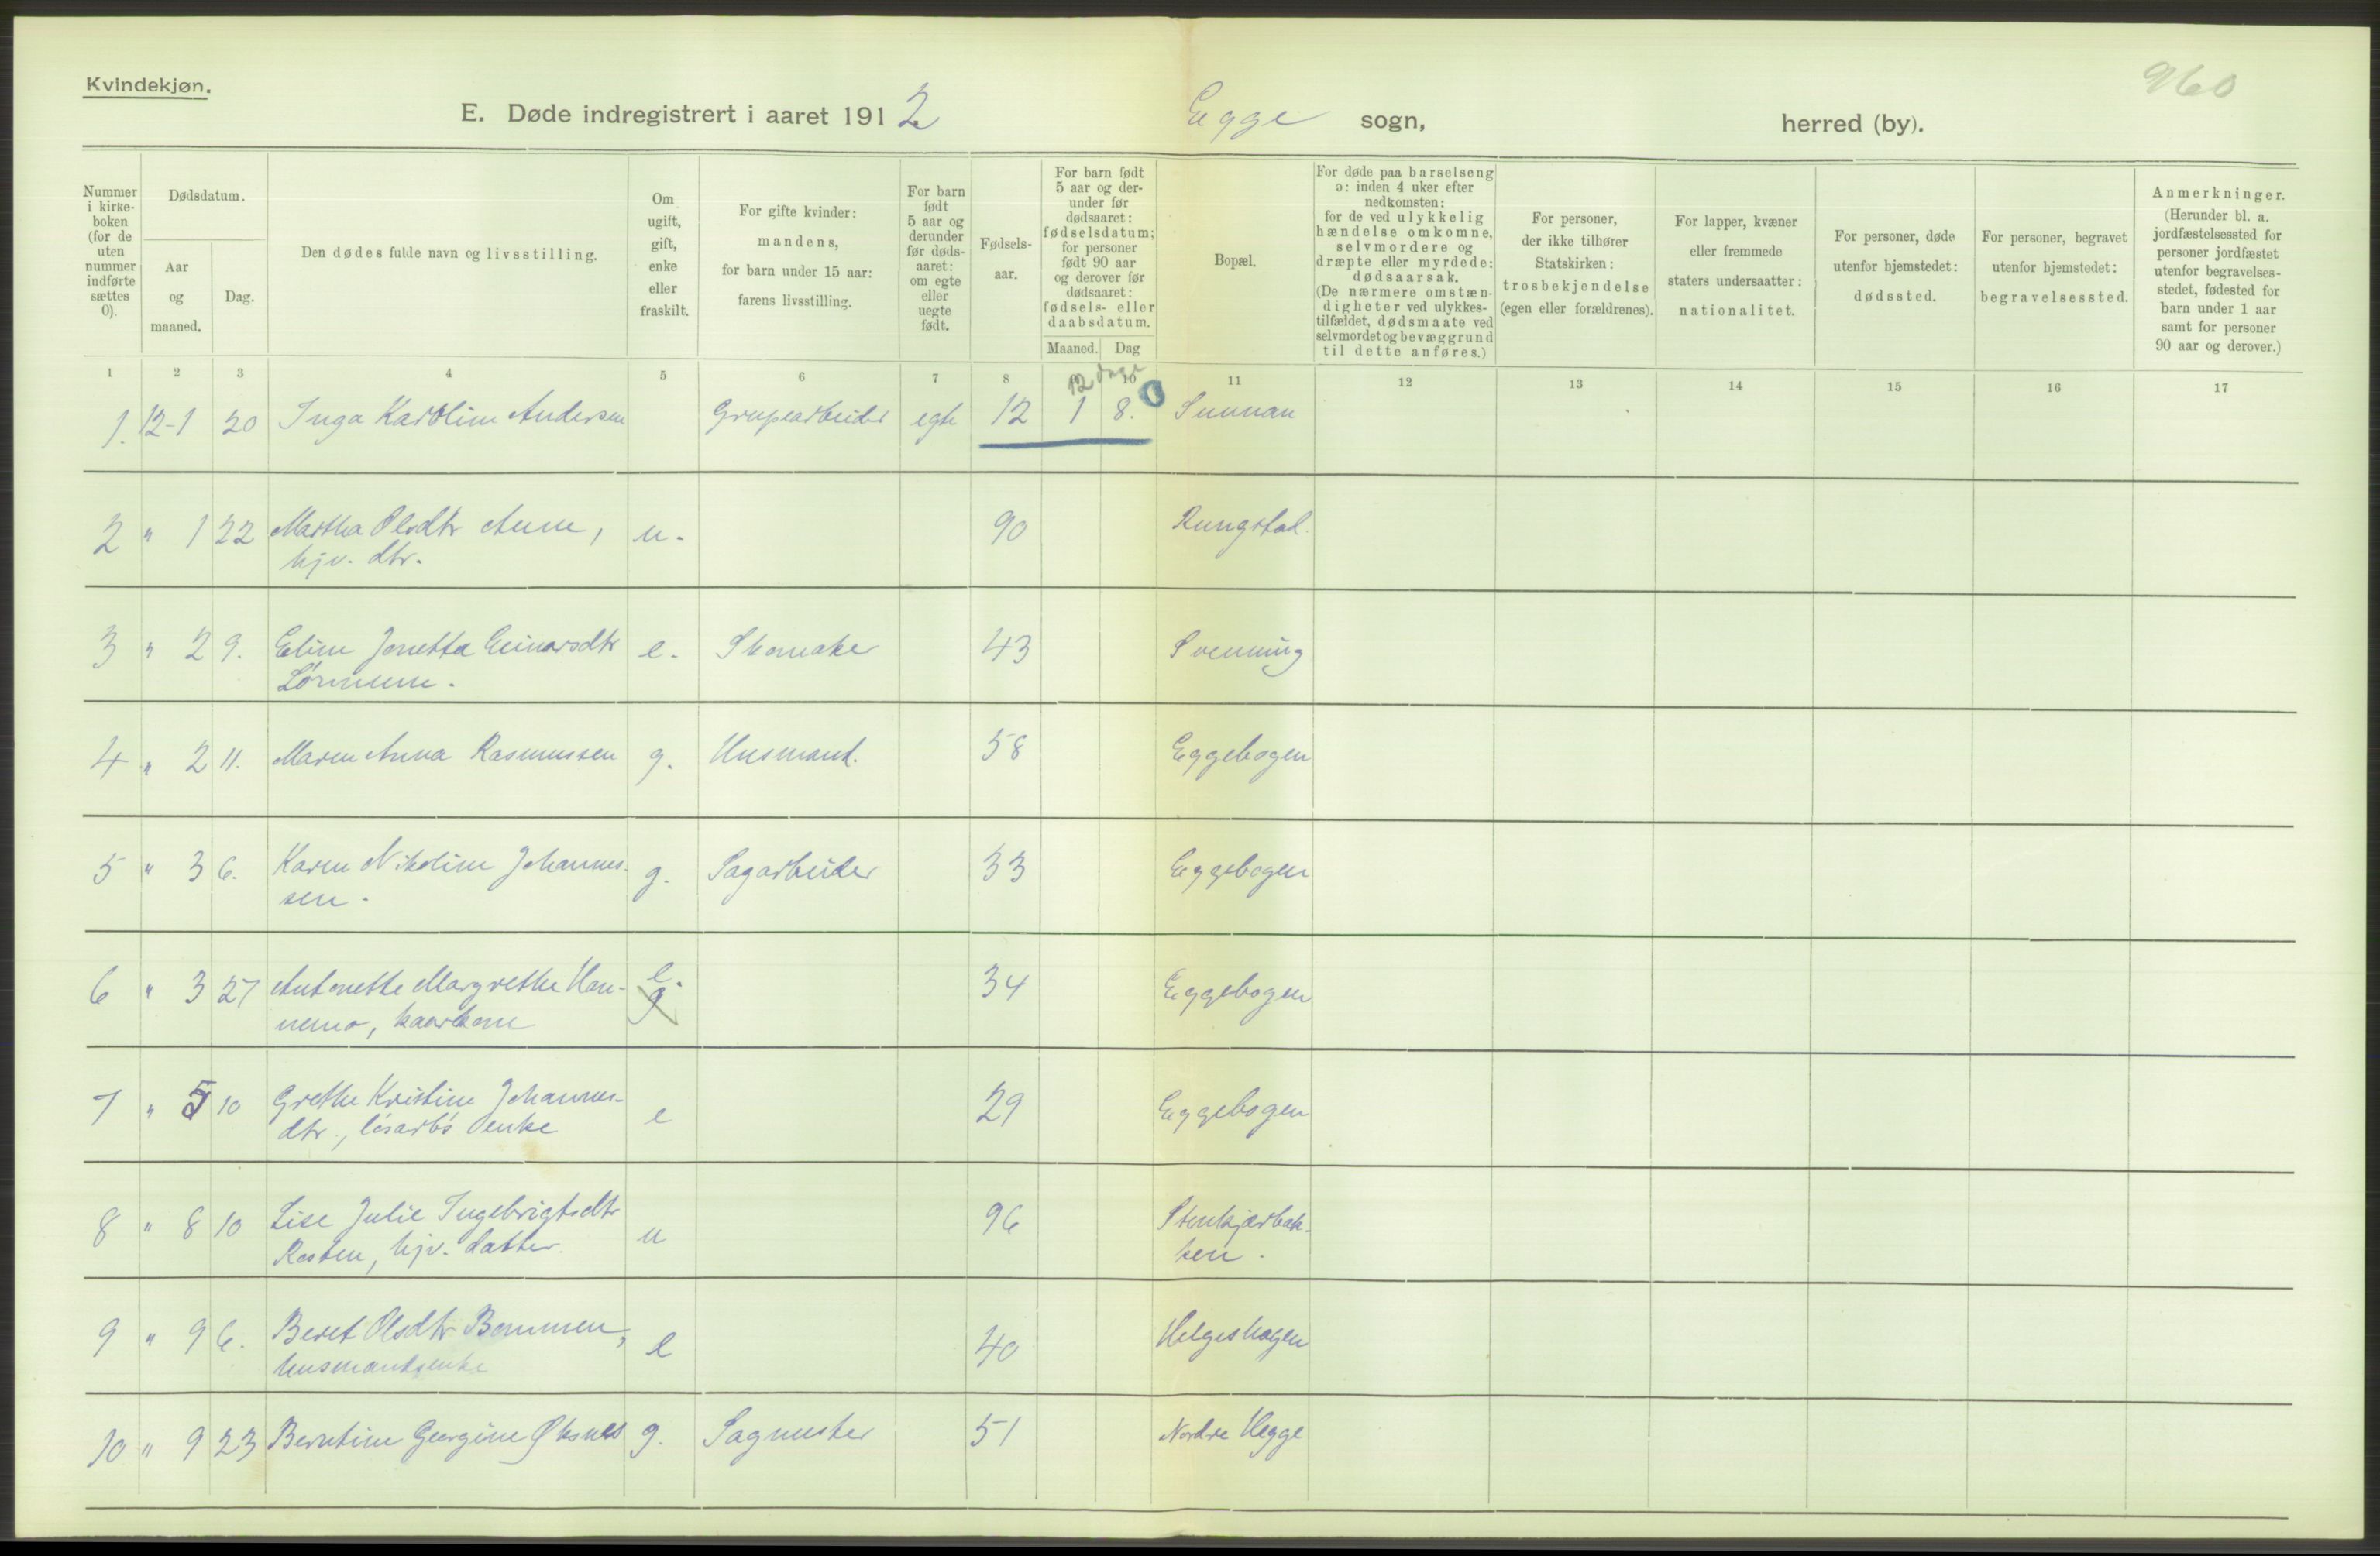 Kvindekjøn.
960
E. Døde indregistrert i aaret 1912 Egge sogn, herred (by).
Nummer i kirke-boken (for de uten nummer indførte sættes 0).
Dødsdatum.
Aar og maaned.
Dag.
Den dødes fulde navn og livsstilling.
Om ugift, gift, enke eller fraskilt.
For gifte kvinder: mandens, for barn under 15 aar: farens livsstilling.
For barn født 5 aar og derunder før døds-aaret: om egte eller uegte født.
Fødsels-aar.
For barn født 5 aar og der-under før dødsaaret: fødselsdatum; for personer født 90 aar og derover før dødsaaret: fødsels- eller daabsdatum.
Maaned. Dag
Bopæl.
For døde paa barselseng ɔ: inden 4 uker efter nedkomsten: for de ved ulykkelig hændelse omkomne, selvmordere og dræpte eller myrdede: dødsaarsak. (De nærmere omstæn-digheter ved ulykkes-tilfældet, dødsmaate ved selvmordet og bevæggrund til dette anføres.)
For personer, der ikke tilhører Statskirken: trosbekjendelse (egen eller forældrenes).
For lapper, kvæner eller fremmede staters undersaatter: nationalitet.
For personer, døde utenfor hjemstedet: dødssted.
For personer, begravet utenfor hjemstedet: begravelsessted.
Anmerkninger. (Herunder bl. a. jordfæstelsessted for personer jordfæstet utenfor begravelses-stedet, fødested for barn under 1 aar samt for personer 90 aar og derover.)
1 2 3 4 5 6 7 8 10 11 12 13 14 15 16 17
12 dage
1. 12-1 20 Inga Karoline Andersen Grupearbeider egte 12 1 8. 0 Sunnan
2 " 1 22 Martha Olsdtr Aune, u. 90 Rungstad.
hjv. dtr.
3 " 2 9. Eline Jonetta Einarsdtr e. Skomaker 43 Svenning
4 " 2 11. Maren Anna Rasmussen g. Husmand. 58 Eggebogen
5 " 3 6. Karen Nikoline Johannes- g. Sagarbeider 33 Eggebogen
sen.
6 " 3 27 Antonette Margrethe Han- e. g 34 Eggebogen
nemo, kaarkone
7 " 5 10 Grethe Kristine Johannes- e 29 Eggebogen
dtr., løsarb's enke
8 " 8 10 Lise Julie Ingebrigtsdtr u 96 Stenkjærbak-
Rosten, hjv. datter. ken.
9 " 9 6. Beret Olsdtr Bommen, e 40 Helgeshagen
husmandsenke
10 " 9 23 Berntine Georgine Øksnes g. Sagmester 51 Nordre Hegge